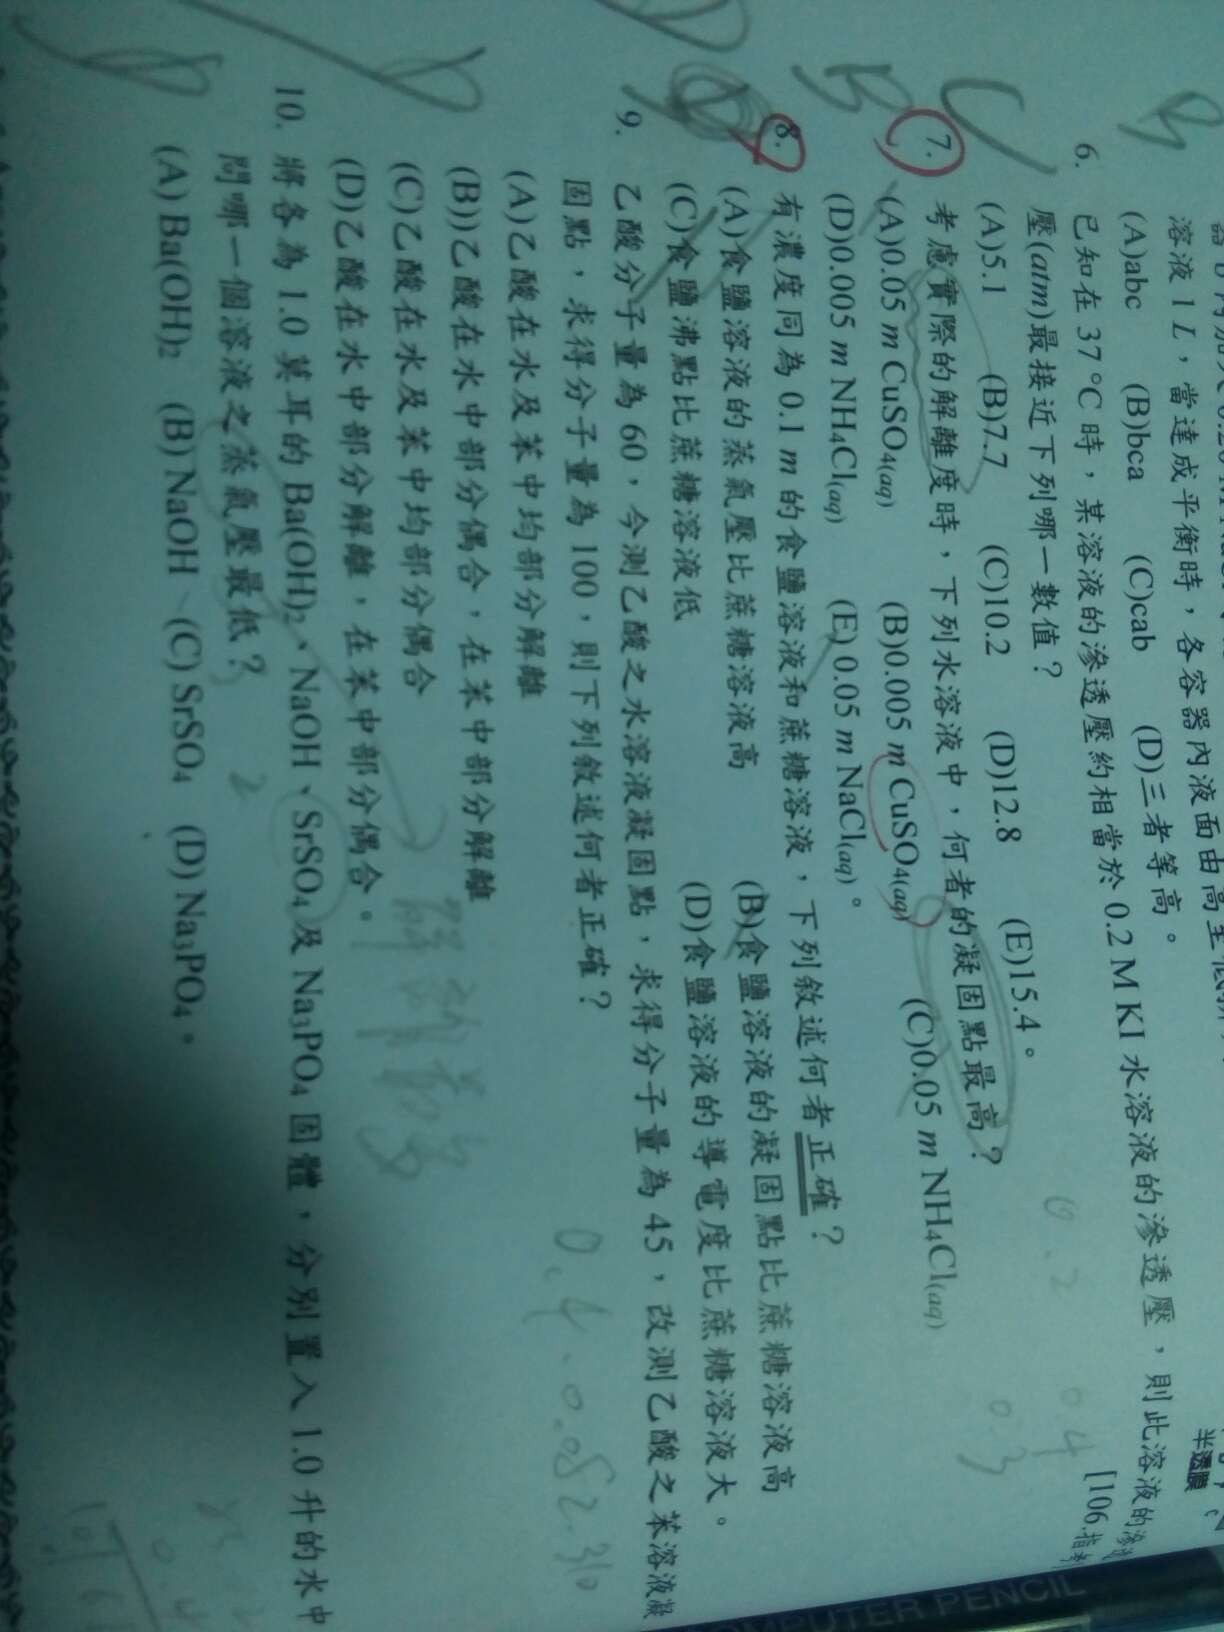 溶液 1 L，當達成平衡時，各容器內液面由高至低
半透膜
(A)abc (B)bca (C)cab (D)三者等高。
[106.指考
B
6. 已知在 37°C 時，某溶液的滲透壓約相當於 0.2 M KI 水溶液的滲透壓，則此溶液的滲透
壓(atm)最接近下列哪一數值？
(A)5.1 (B)7.7 (C)10.2 (D)12.8 (E)15.4。
0.2
0.4
0.3
C
7. 考慮實際的解離度時，下列水溶液中，何者的凝固點最高？
(A)0.05 m CuSO4(aq) (B)0.005 m CuSO4(aq) (C)0.05 m NH4Cl(aq)
(D)0.005 m NH4Cl(aq) (E) 0.05 m NaCl(aq)。
B
8. 有濃度同為 0.1 m 的食鹽溶液和蔗糖溶液，下列敘述何者正確？
(A)食鹽溶液的蒸氣壓比蔗糖溶液高 (B)食鹽溶液的凝固點比蔗糖溶液高
(C)食鹽沸點比蔗糖溶液低 (D)食鹽溶液的導電度比蔗糖溶液大。
D
9. 乙酸分子量為 60，今測乙酸之水溶液凝固點，求得分子量為 45，改測乙酸之苯溶液凝
固點，求得分子量為 100，則下列敘述何者正確？
0.4.0.082.310
(A)乙酸在水及苯中均部分解離
(B))乙酸在水中部分偶合，在苯中部分解離
(C)乙酸在水及苯中均部分偶合
(D)乙酸在水中部分解離，在苯中部分偶合。
D
10. 將各為 1.0 莫耳的 Ba(OH)2、NaOH、SrSO4 及 Na3PO4 固體，分別置入 1.0 升的水中
問哪一個溶液之蒸氣壓最低？
3 2
(A) Ba(OH)2 (B) NaOH (C) SrSO4 (D) Na3PO4。
D
COMPUTER PENCIL